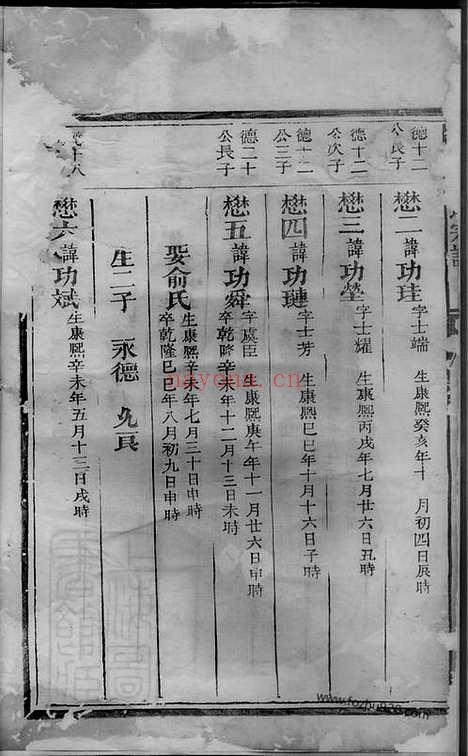 德十二
公長子
懋二諱功珪
字士端
生康熙癸亥年十 月初四日辰時
德十二
公次子
懋三諱功瑩
字士耀
生康熙丙戌年七月廿六日丑時
德十二
公三子
懋四諱功璉
字士芳
生康熙己巳年十月十六日子時
德二十
公長子
懋五諱功舜
字虞臣
生康熙庚午年十一月廿六日申時
卒乾隆辛年十二月十三日未時
娶俞氏
生康熙辛年七月三十日申時
卒乾隆己巳年八月初九日申時
生二子 永德 九良
懋六諱功斌
生康熙辛未年五月十三日戌時
nayona.cn